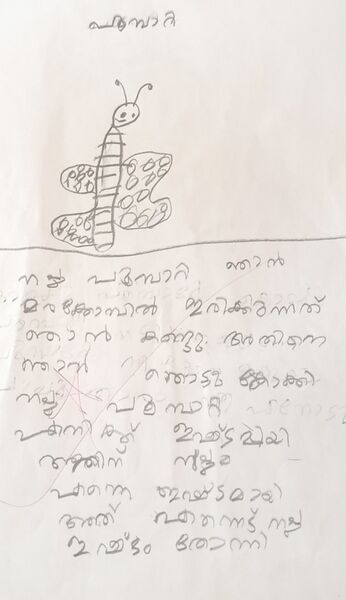 പൂമ്പാറ്റ
നല്ല പൂമ്പാറ്റ ഞാൻ
മരക്കോമ്പിൽ ഇരിക്കുന്നത്
ഞാൻ കണ്ടു അതിനെ
ഞാൻ തൊട്ടു നോക്കി
നല്ല പൂമ്പാറ്റ
എനിക്ക് ഇഷ്ടമായി
അതിന്
എന്നെ ഇഷ്ടമായി
അത് എന്നോട് നല്ല
ഇഷ്ടം തോന്നി